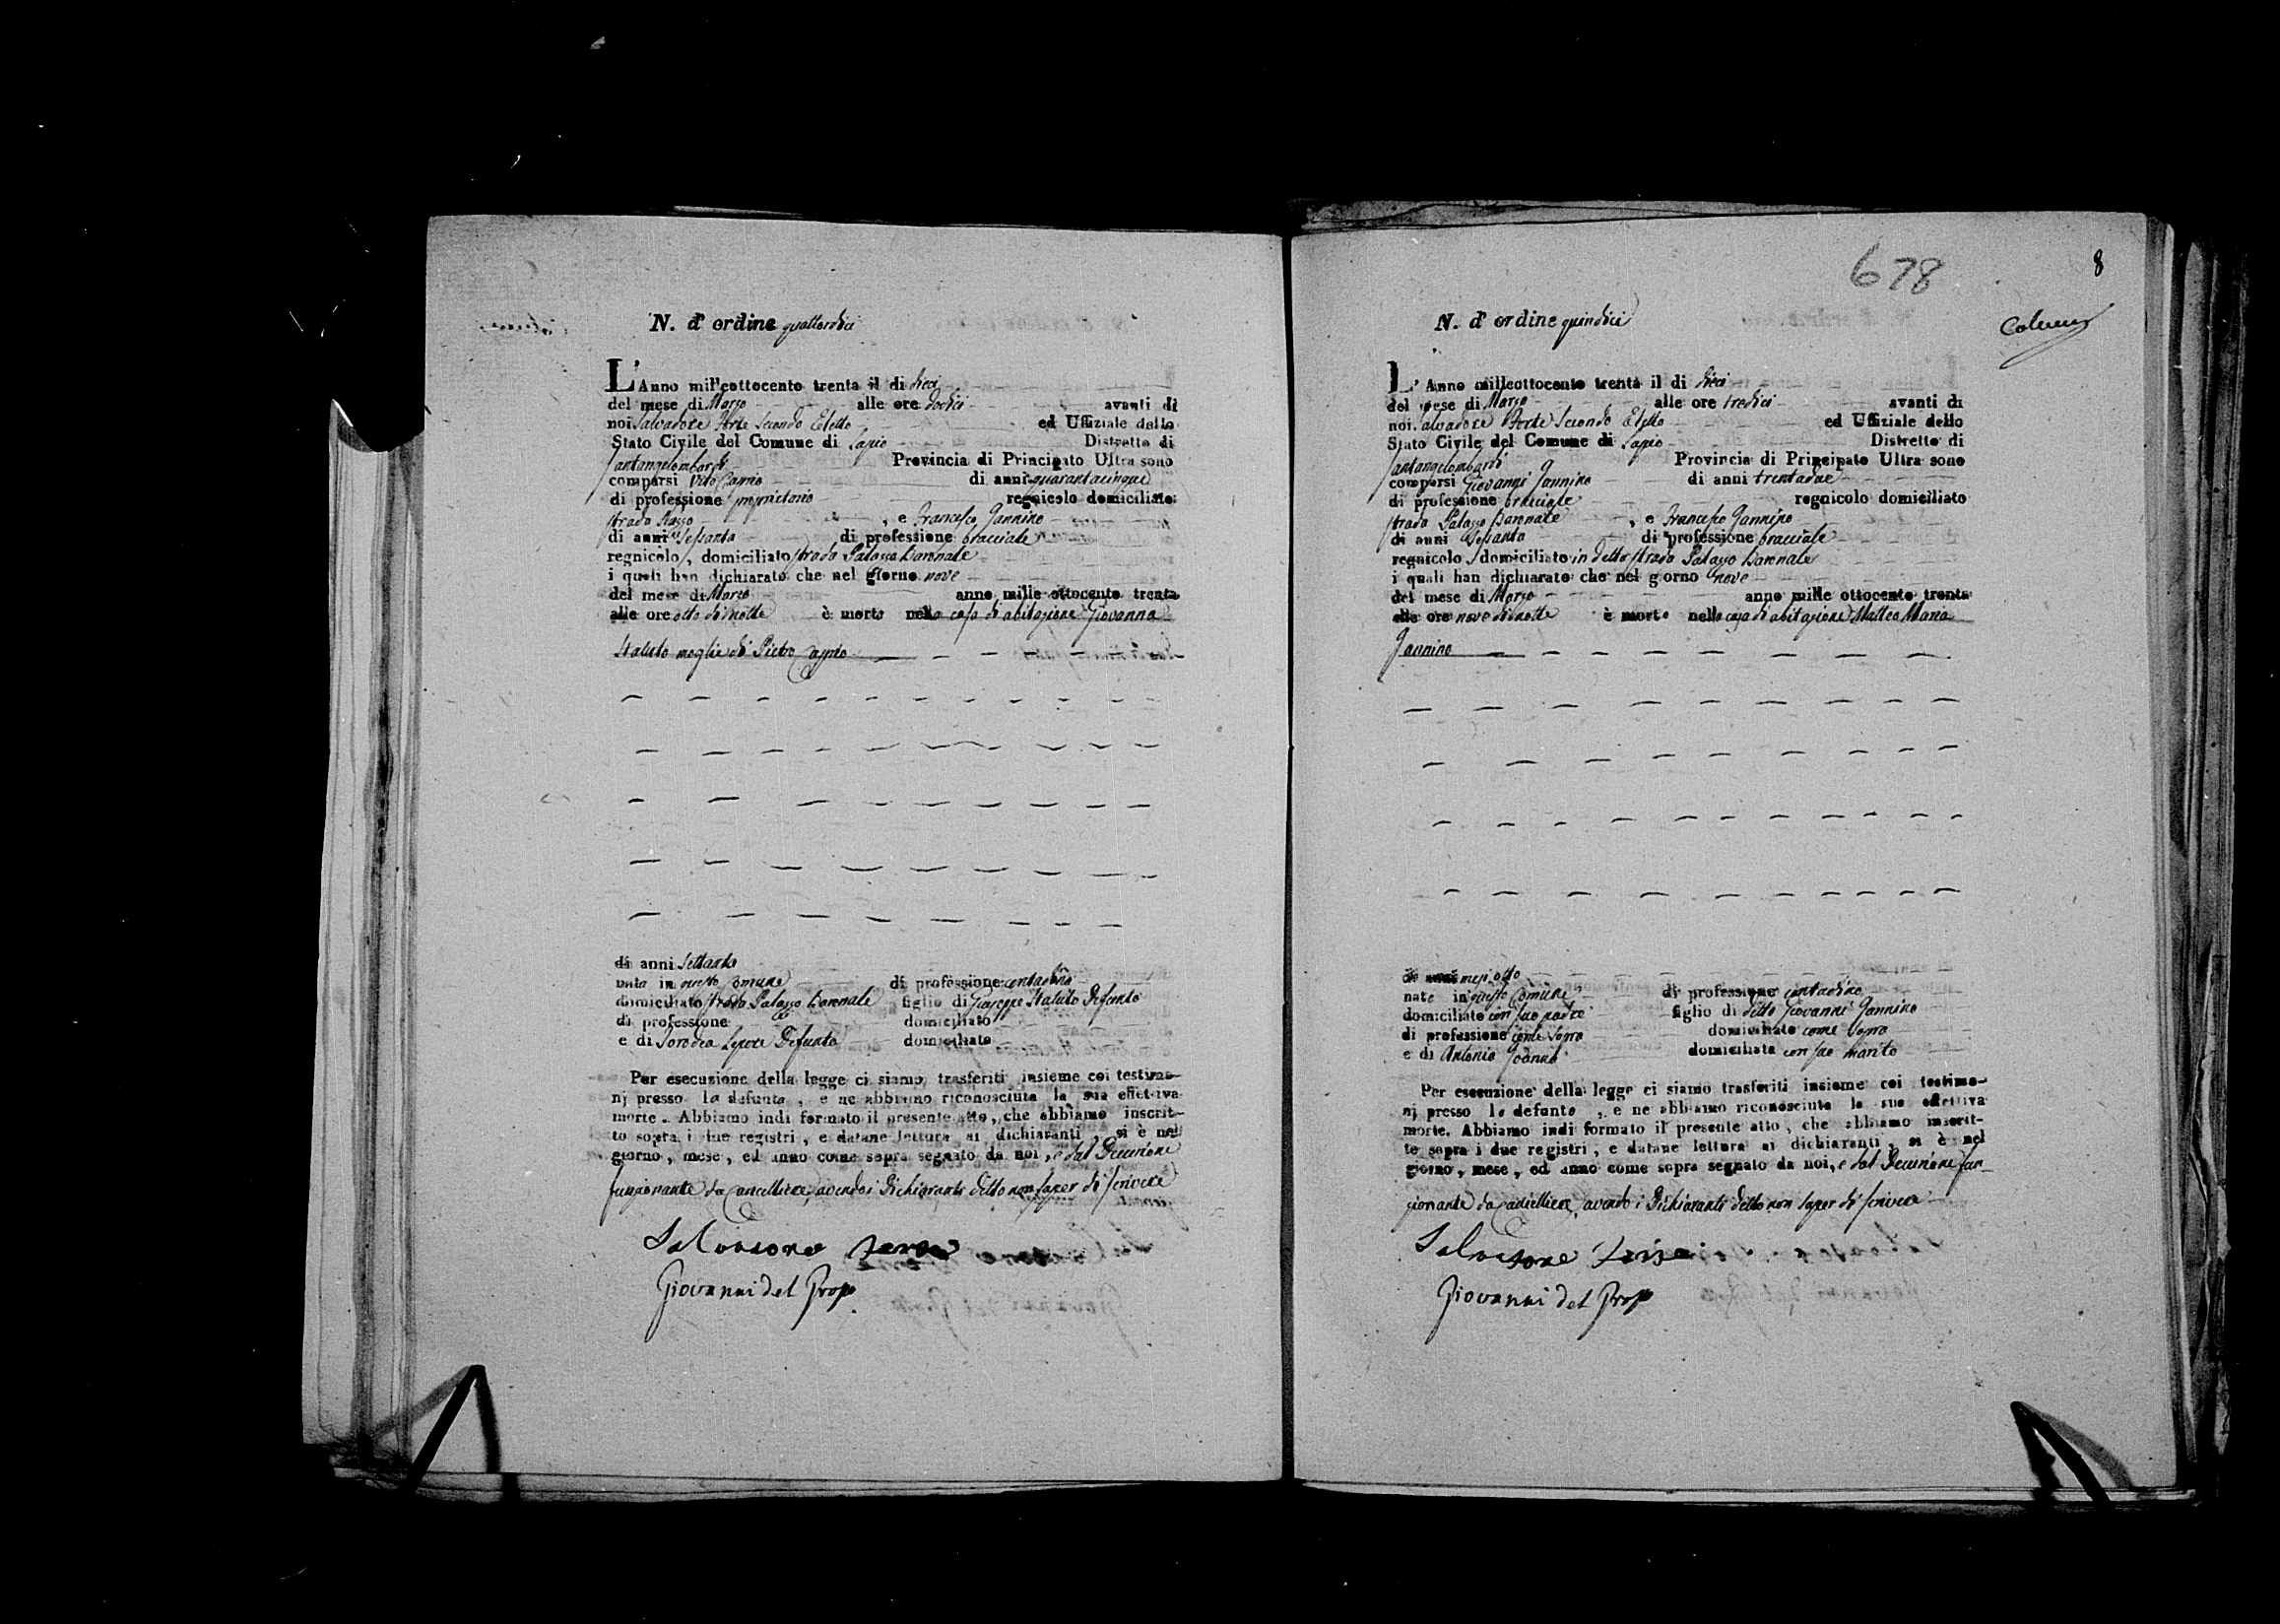 N. d'ordine quattordici
L'Anno mille ottocento trenta il di dieci
del mese di Marzo alle ore dodici avanti di
noi Salvadore Forte Secondo Eletto ed Uffiziale dello
Stato Civile del Comune di Lapio Distretto di
Santangelombardi Provincia di Principato Ultra sono
comparsi Vito Carrio di anni quarantacinque
di professione proprietario regnicolo domiciliato
strada Piazza , e Francesco Jannino
di anni sessanta di professione bracciale
regnicolo, domiciliato strada Palazzo Baronale
i quali han dichiarato che nel giorno nove
del mese di Marzo anno mille ottocento trenta
alle ore otto di notte è morta nella casa di abitazione Giovanna
Staluto moglie di Pietro Carrio
di anni settanta
nata in questo Comune di professione contadina
domiciliato strada Palazzo Baronale figlio di Giuseppe Staluto Defunto
di professione domiciliato
e di Lepore Defunta domiciliata
Per esecuzione della legge ci siamo trasferiti insieme coi testimo-
nj presso la defunta, e ne abbiamo riconosciuta la sua effettiva
morte. Abbiamo indi formato il presente atto, che abbiamo inscrit-
to sopra i due registri, e datane lettura ai dichiaranti, si è nel
giorno, mese, ed anno come sopra segnato da noi, e dal Decurione
funzionante da Cancelliere, avendo i Dichiaranti detto non saper di scrivere
Salvadore Forte
Giovanni del Prop
678
8
N. d'ordine quindici
L'Anno milleottocento trenta il di dieci
del mese di Marzo alle ore tredici avanti di
noi Salvadore Forte Secondo Eletto ed Uffiziale dello
Stato Civile del Comune di Lapio Distretto di
Santangelombardi Provincia di Principato Ultra sono
comparsi Giovanni Jannino di anni trentadue
di professione bracciale regnicolo domiciliato
strada Palazzo Baronale , e Francesco Jannino
di anni sessanta di professione bracciale
regnicolo, domiciliato in detta strada Palazzo Baronale
i quali han dichiarato che nel giorno nove
del mese di Marzo anno mille ottocento trenta
alle ore nove di notte è morto nella casa di abitazione Matteo Maria
Jannino
di anni mesi otto
nato in questo Comune di professione contadino
domiciliato con suo padre figlio di detto Giovanni Jannino
di professione come sopra domiciliato come sopra
e di Antonia domiciliata con suo marito
Per esecuzione della legge ci siamo trasferiti insieme coi testimo-
nj presso lo defunto, e ne abbiamo riconosciuta la sua effettiva
morte. Abbiamo indi formato il presente atto, che abbiamo inscrit-
to sopra i due registri, e datane lettura ai dichiaranti, si è nel
giorno, mese, ed anno come sopra segnato da noi, e dal Decurione fun-
zionante da Cancelliere, avendo i Dichiaranti detto non saper di scrivere
Salvadore Forte
Giovanni del Prop